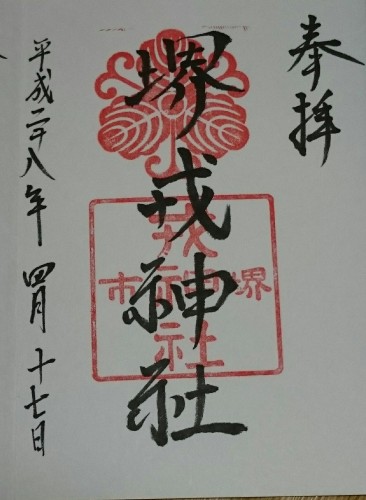 奉拝
堺戎神社
堺市
戎神社
平成二十八年四月十七日